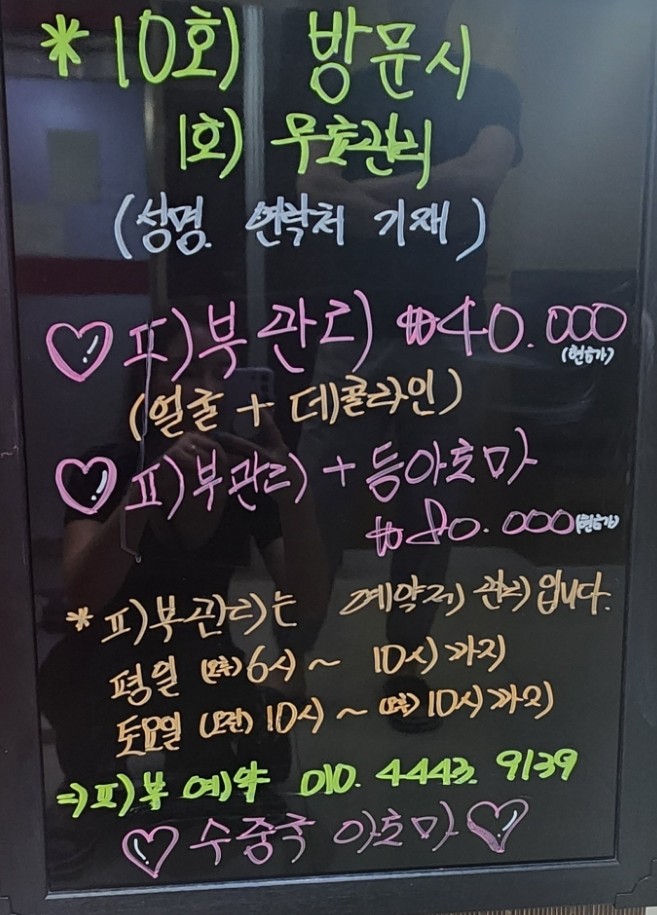 * 10회 방문시
1회 무료관리
(성명. 연락처 기재)
♡ 피부관리 ₩40.000
(현금가)
(얼굴 + 데콜라인)
♡ 피부관리 + 등아로마
₩80.000 (현금가)
* 피부관리는 예약제 관리입니다.
평일 (오후) 6시 ~ 10시까지
토요일 (오전) 10시 ~ (오후) 10시까지
⇒ 피부 예약 010. 4443. 9139
♡ 수중국 아로마 ♡